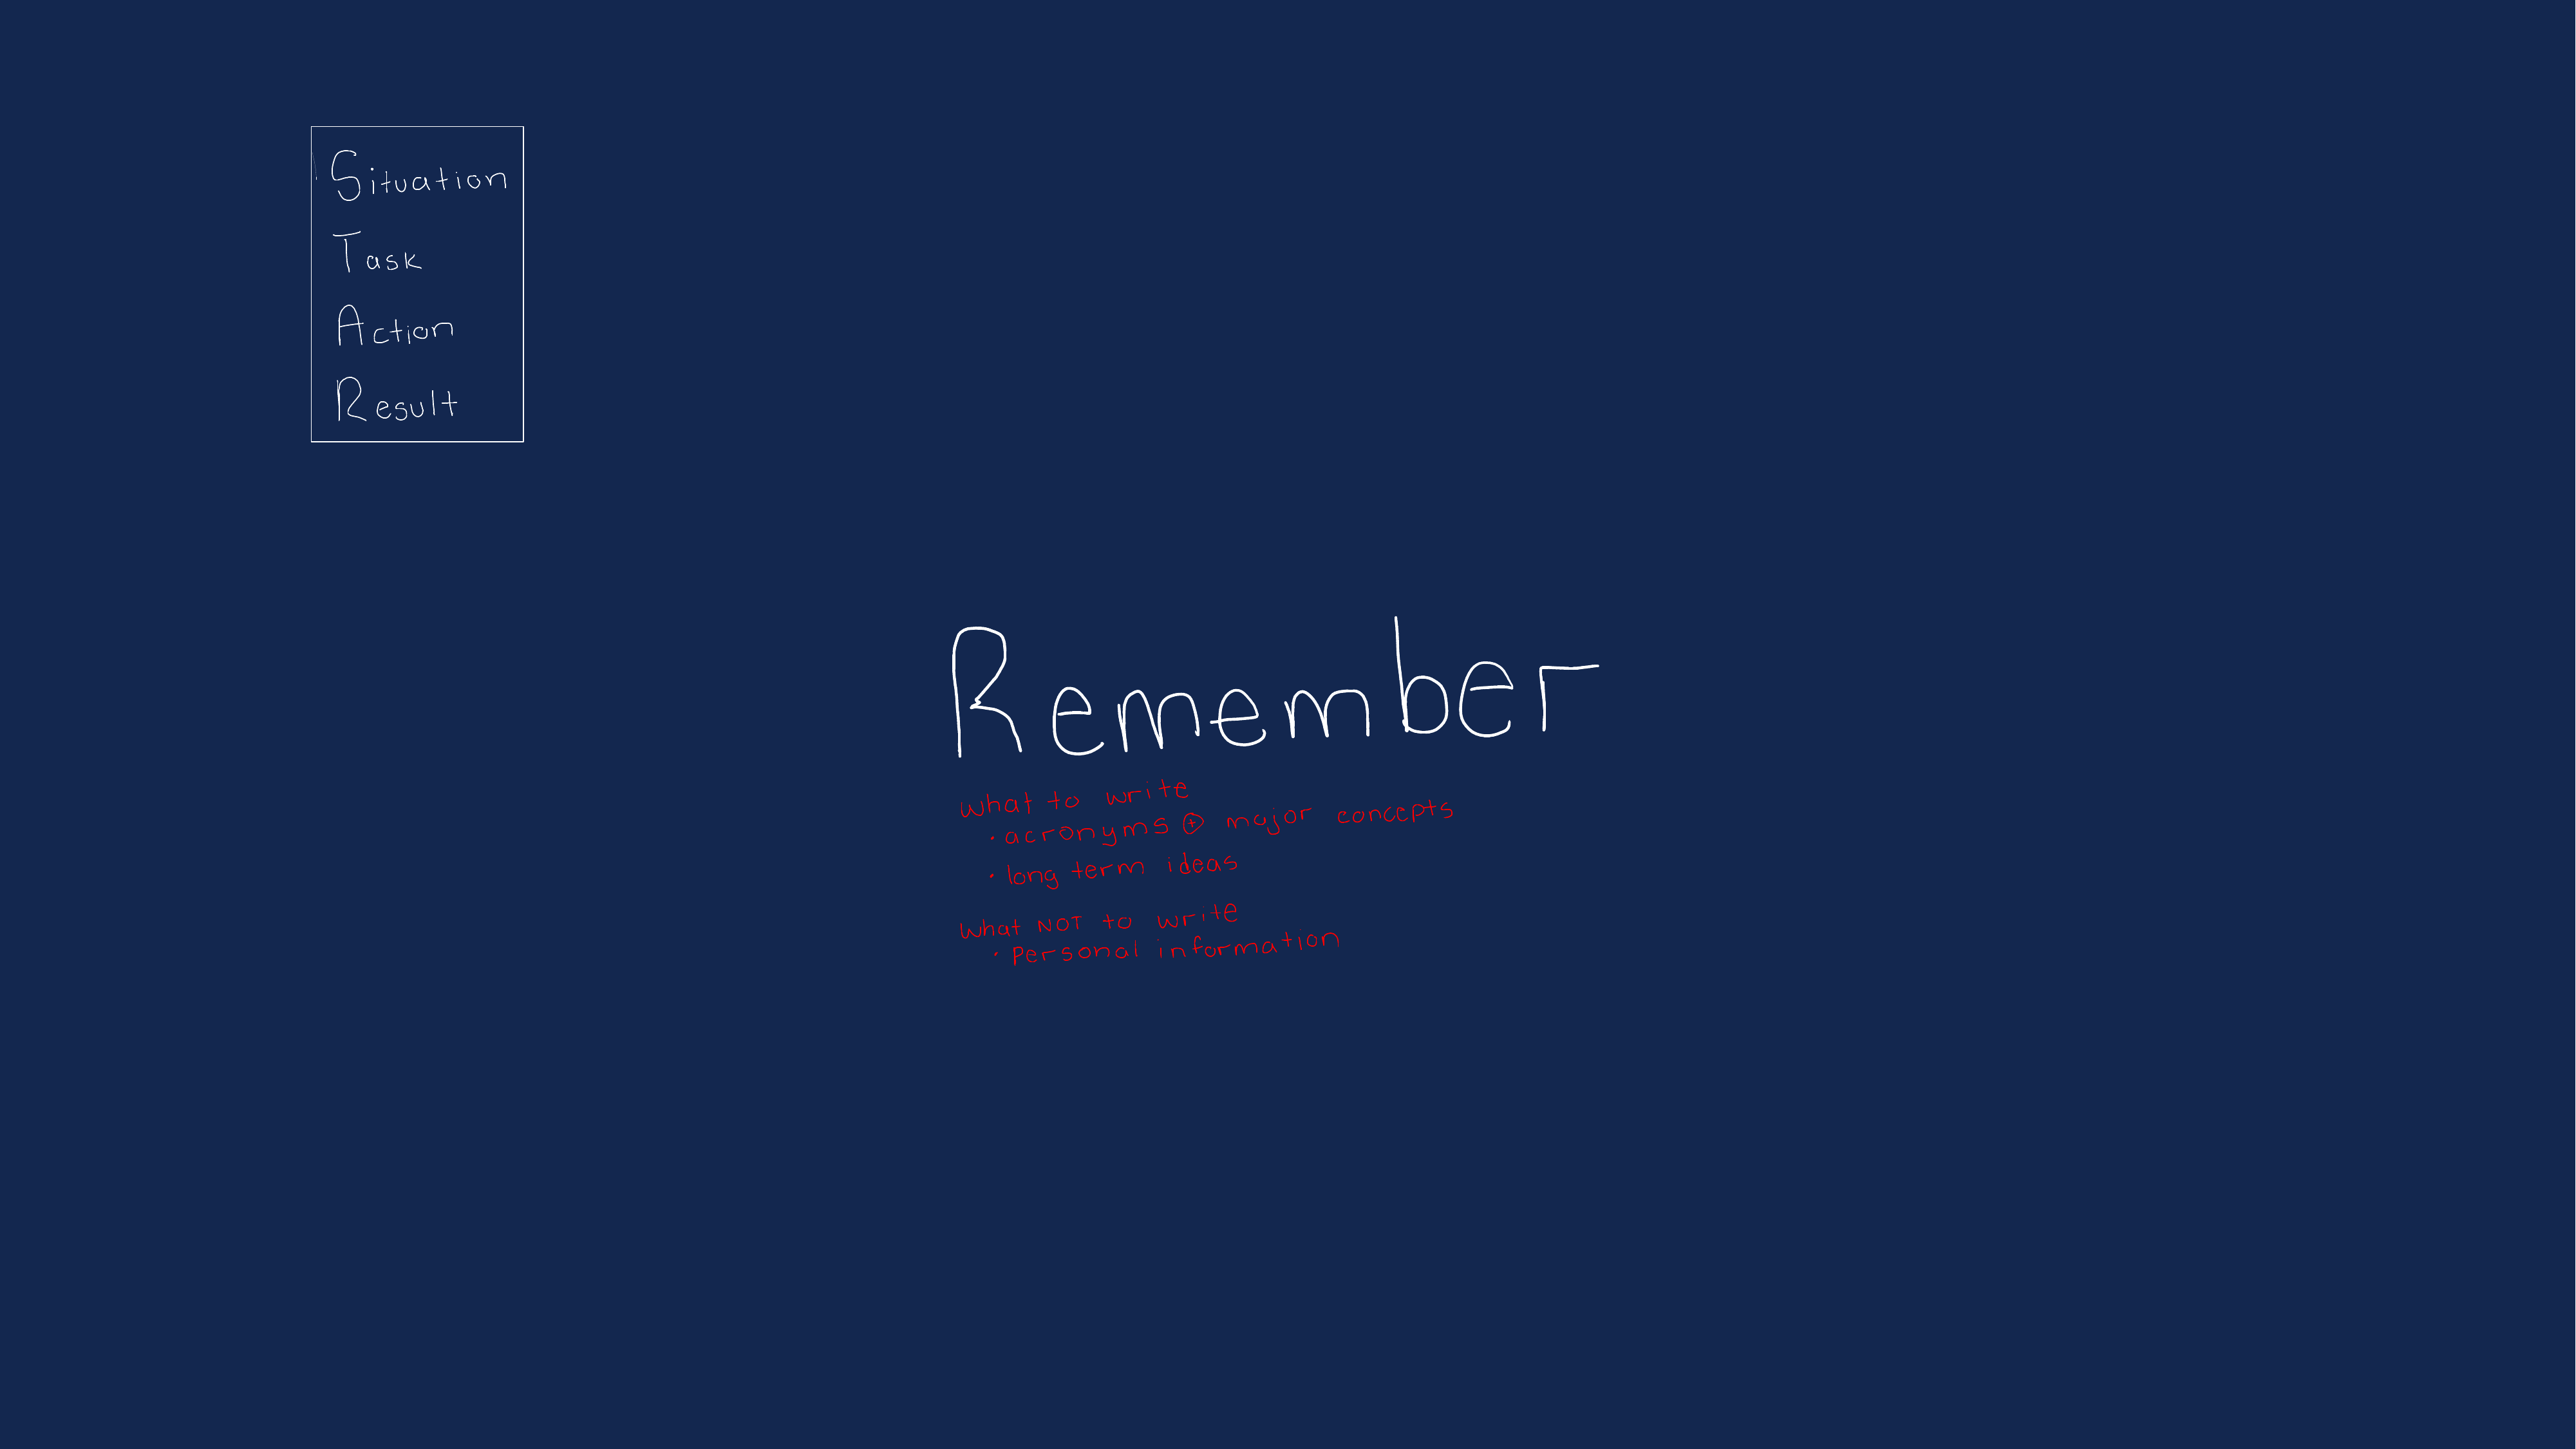 Situation
Task
Action
Result
Remember
what to write
· acronyms ⊕ major concepts
· long term ideas
what NOT to write
· personal information